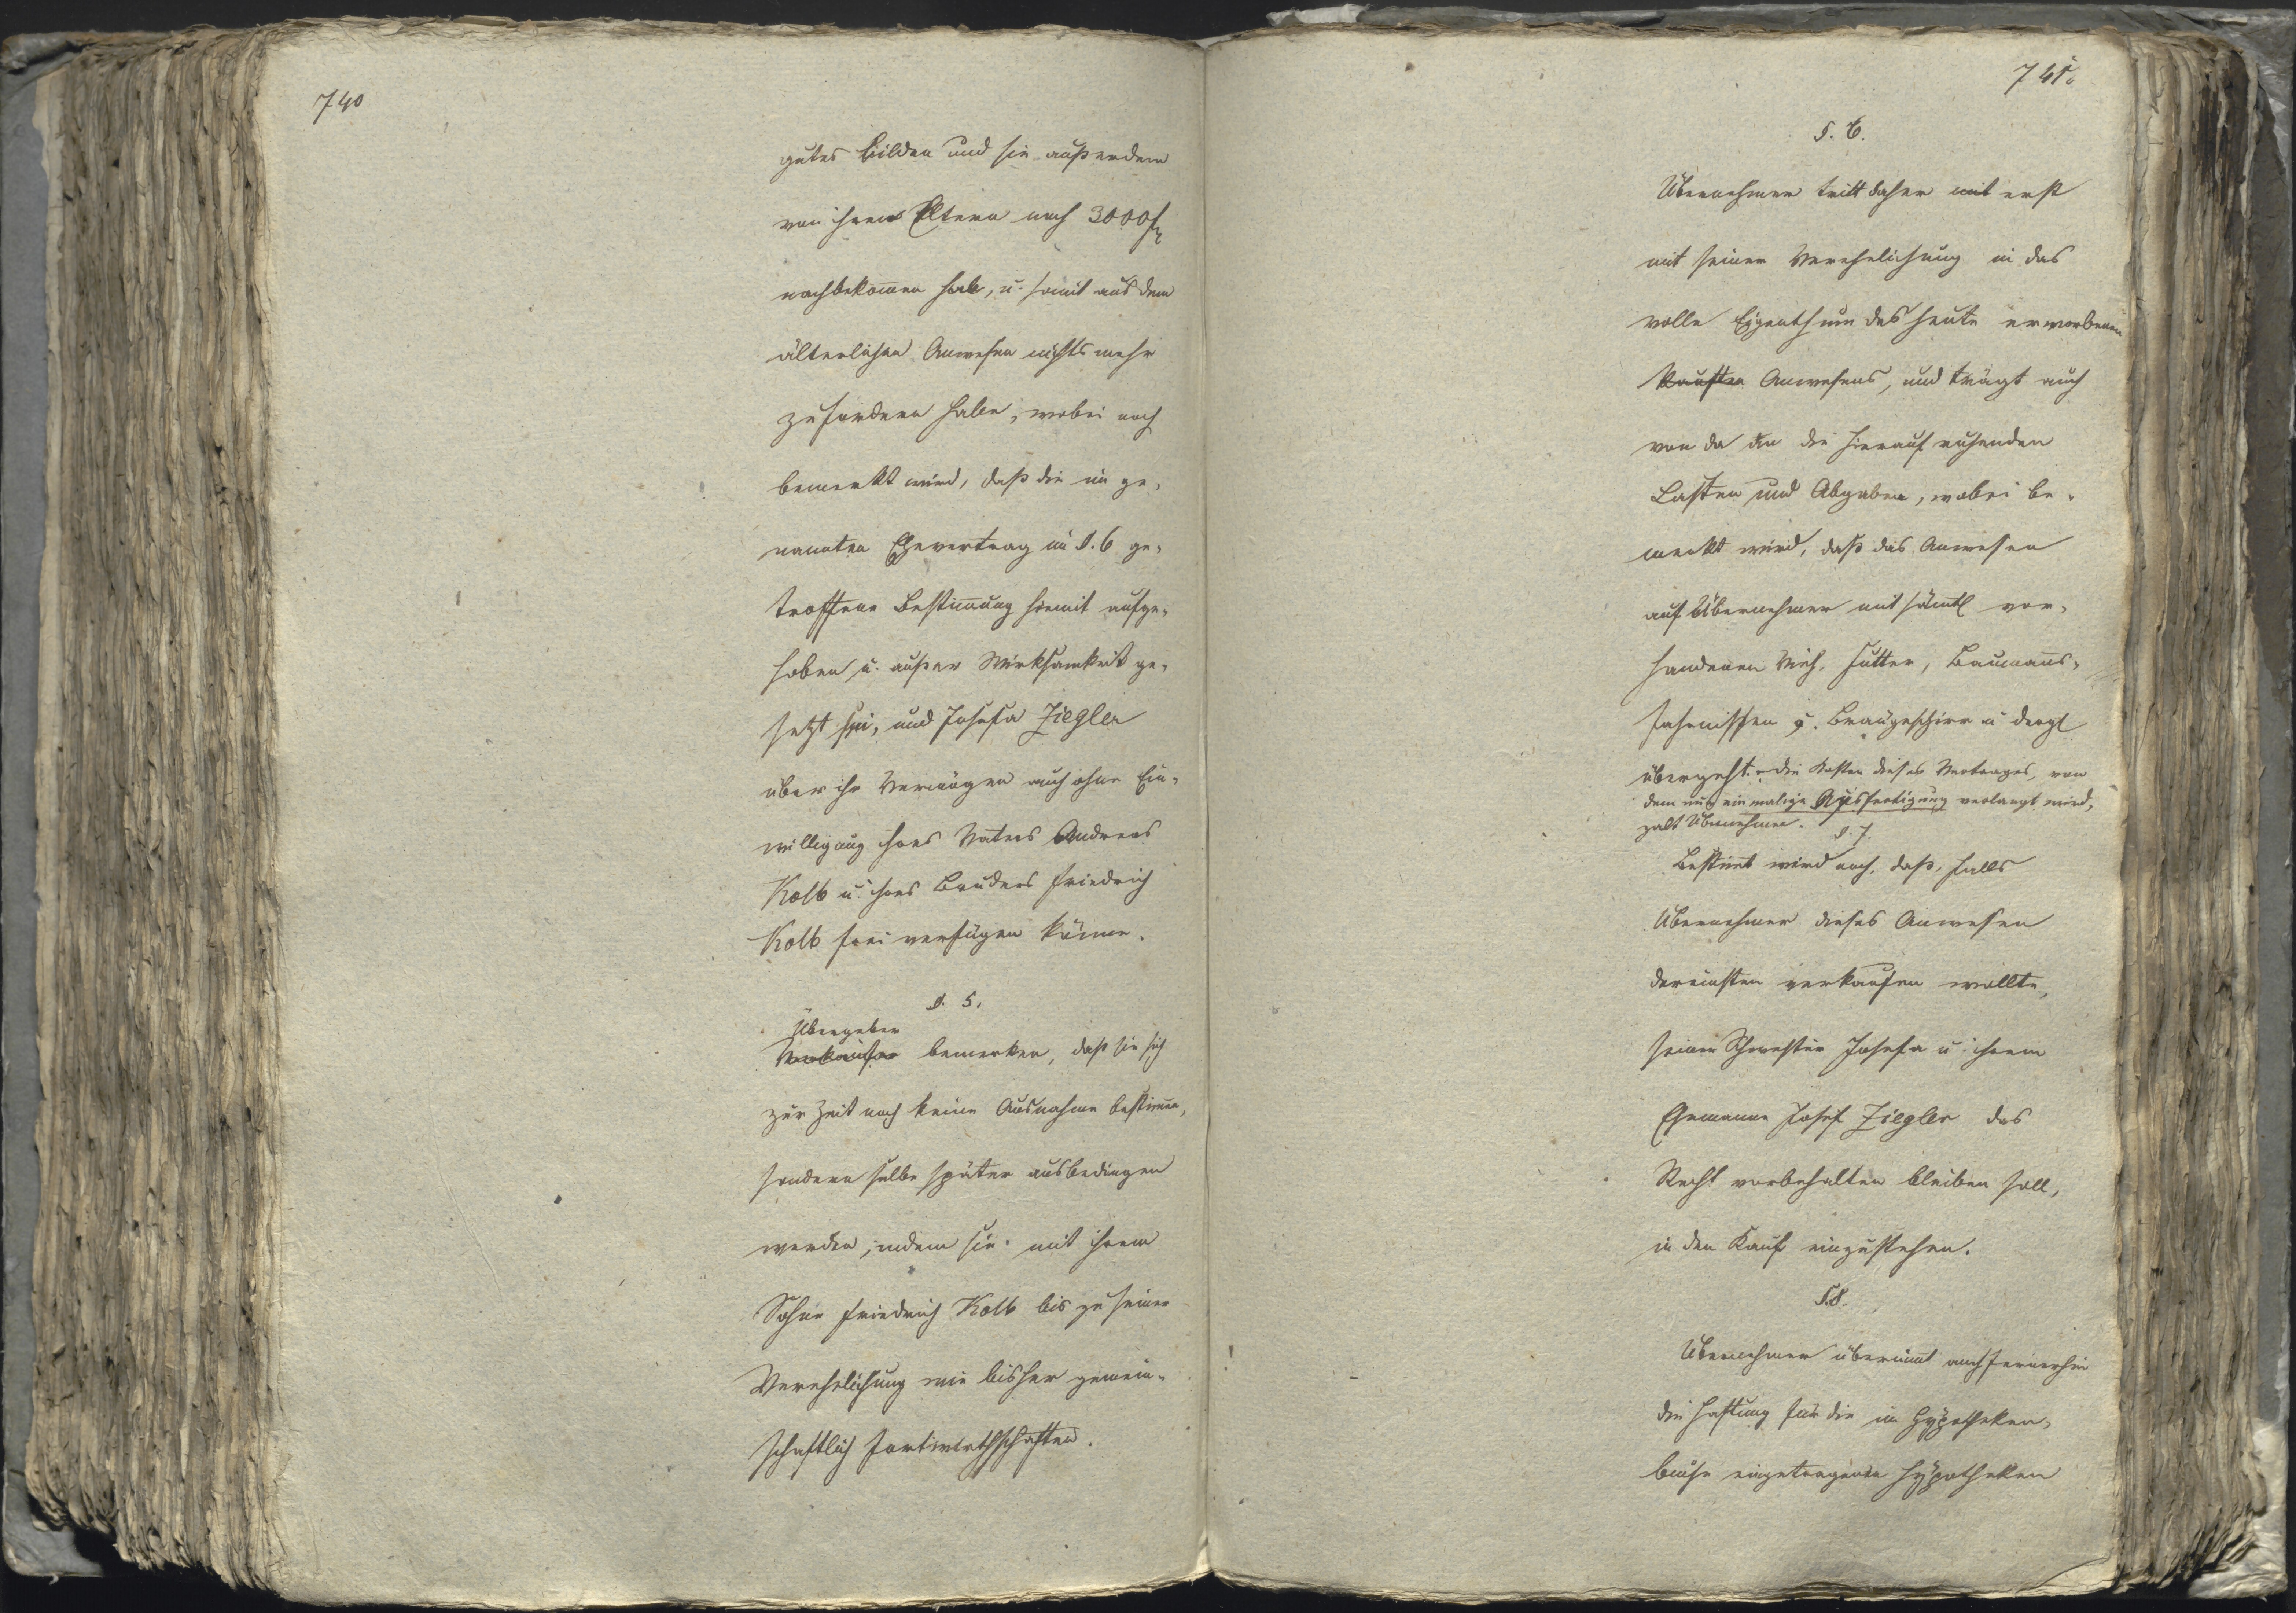 740
gutes bilden und sie außerdem
von ihren Eltern noch 3000 f
nachbekomen habe, u. somit aus dem
älterlichen Anwesen nichts mehr
zufordern habe, wobei noch
bemerkt wird, daß die im ge-
nannten Ehevertrag im §. 6 ge-
troffene Bestimung hiemit aufge-
hoben u. außer Wirksamkeit ge-
setzt sei, und Josefa Ziegler
über ihr Vermögen auch ohne Ein-
willigung ihres Vaters Andreas
Kolb u. ihres Bruders Friedrich
Kolb frei verfügen könne.
§. 5.
Übergeber
Verkäufer bemerken, daß sie sich
zur Zeit noch keine Ausnahme bestimen,
sondern selbe später ausbedingen
werden, indem sie mit ihrem
Sohne Friedrich Kolb bis zu seiner
Verehelichung wie bisher gemein-
schaftlich fortwirthschaften.
741.
§. 6.
Übernehmer tritt daher mit erst
mit seiner Verehelichung in das
volle Eigenthum des heute erworbenen
kauften Anwesens, und trägt auch
von da an die hierauf ruhenden
Lasten und Abgaben, wobei be-
merkt wird, daß das Anwesen
auf Übernehmer mit sämtl vor-
handenen Vieh, Futter, Baumanns-
fahrnissen u. Braugeschirr u dergl
übergeht. die Kosten dieses Vertrages, von
dem nur einmalige Ausfertigung verlangt wird,
zalt Übernehmer.
§. 7.
Bestimt wird noch, daß, falls
Übernehmer dieses Anwesen
dereinsten verkaufen wollte,
seiner Schwester Josefa u. ihrem
Ehemanne Josef Ziegler das
Recht vorbehalten bleiben soll,
in den Kauf einzustehen.
§.8.
Übernehmer übernimt auch fernerhin
die Haftung für die im Hypotheken-
buche eingetragenen Hypotheken